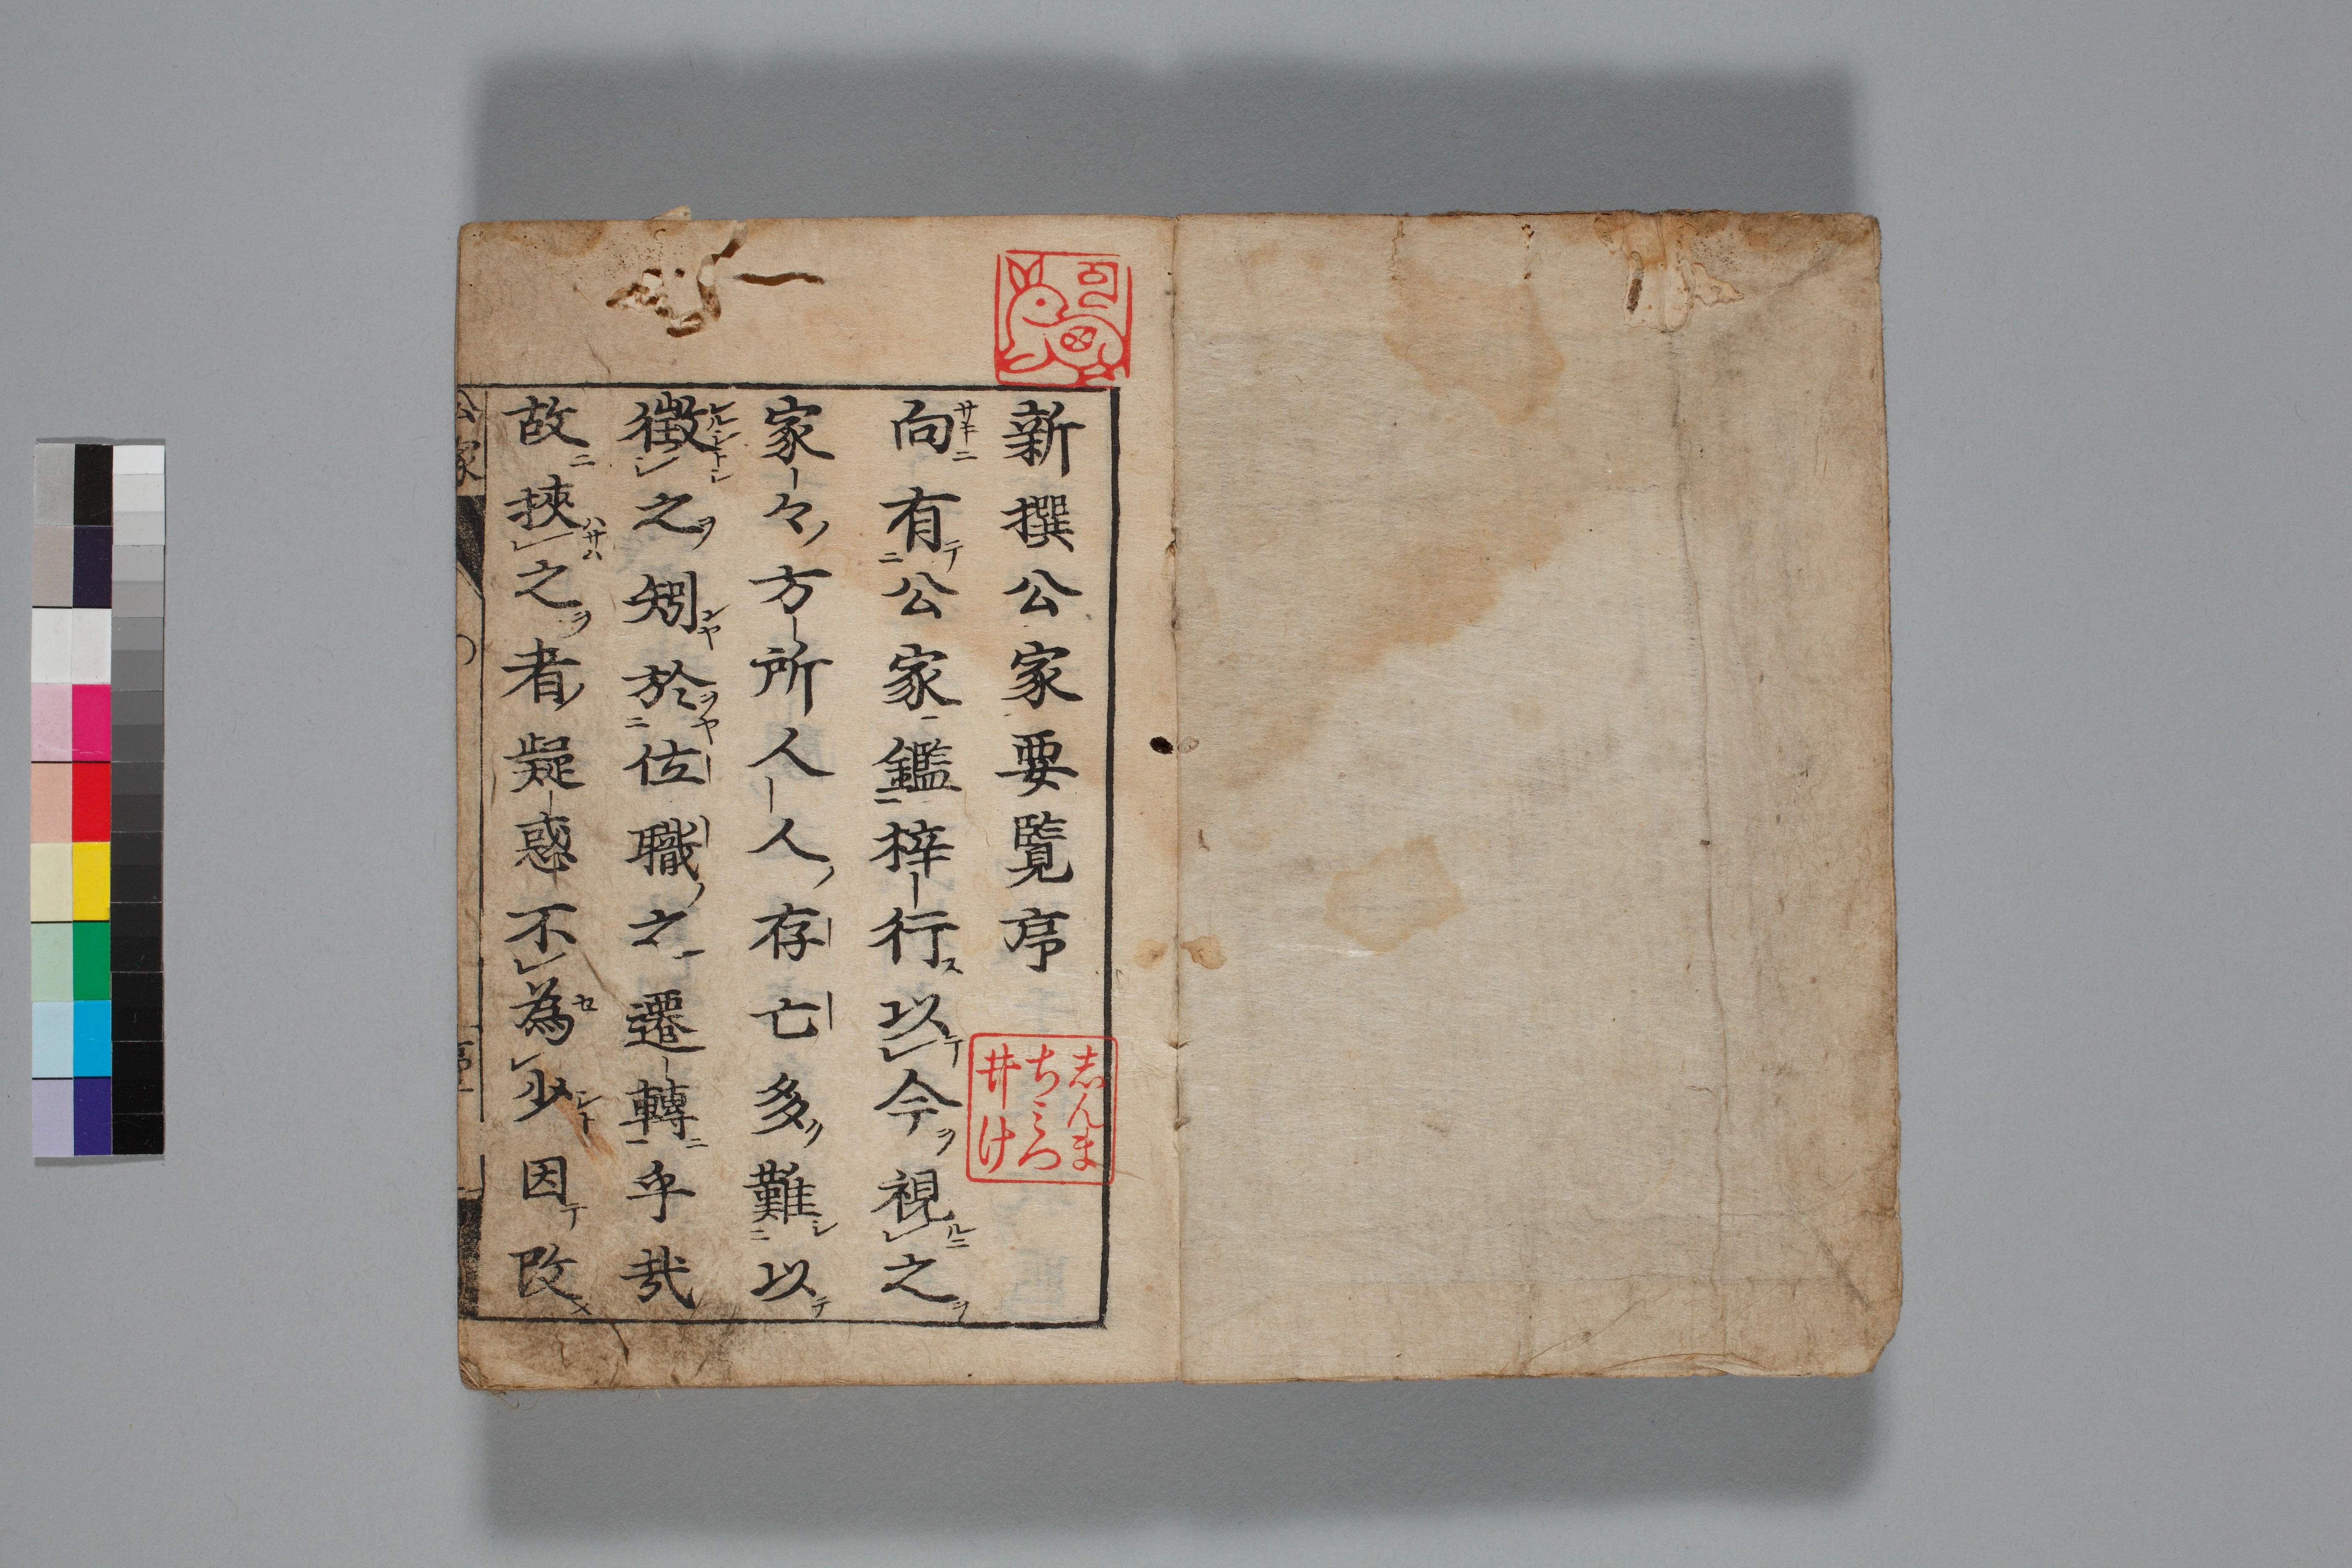 新撰公家要覧序
向有公家鑑梓行以今視之
家々方所人人存亡多難以
徴之矧於位職之遷轉乎哉
故挾之者疑惑不為少因改
志んま
ちミつ
井け
公家